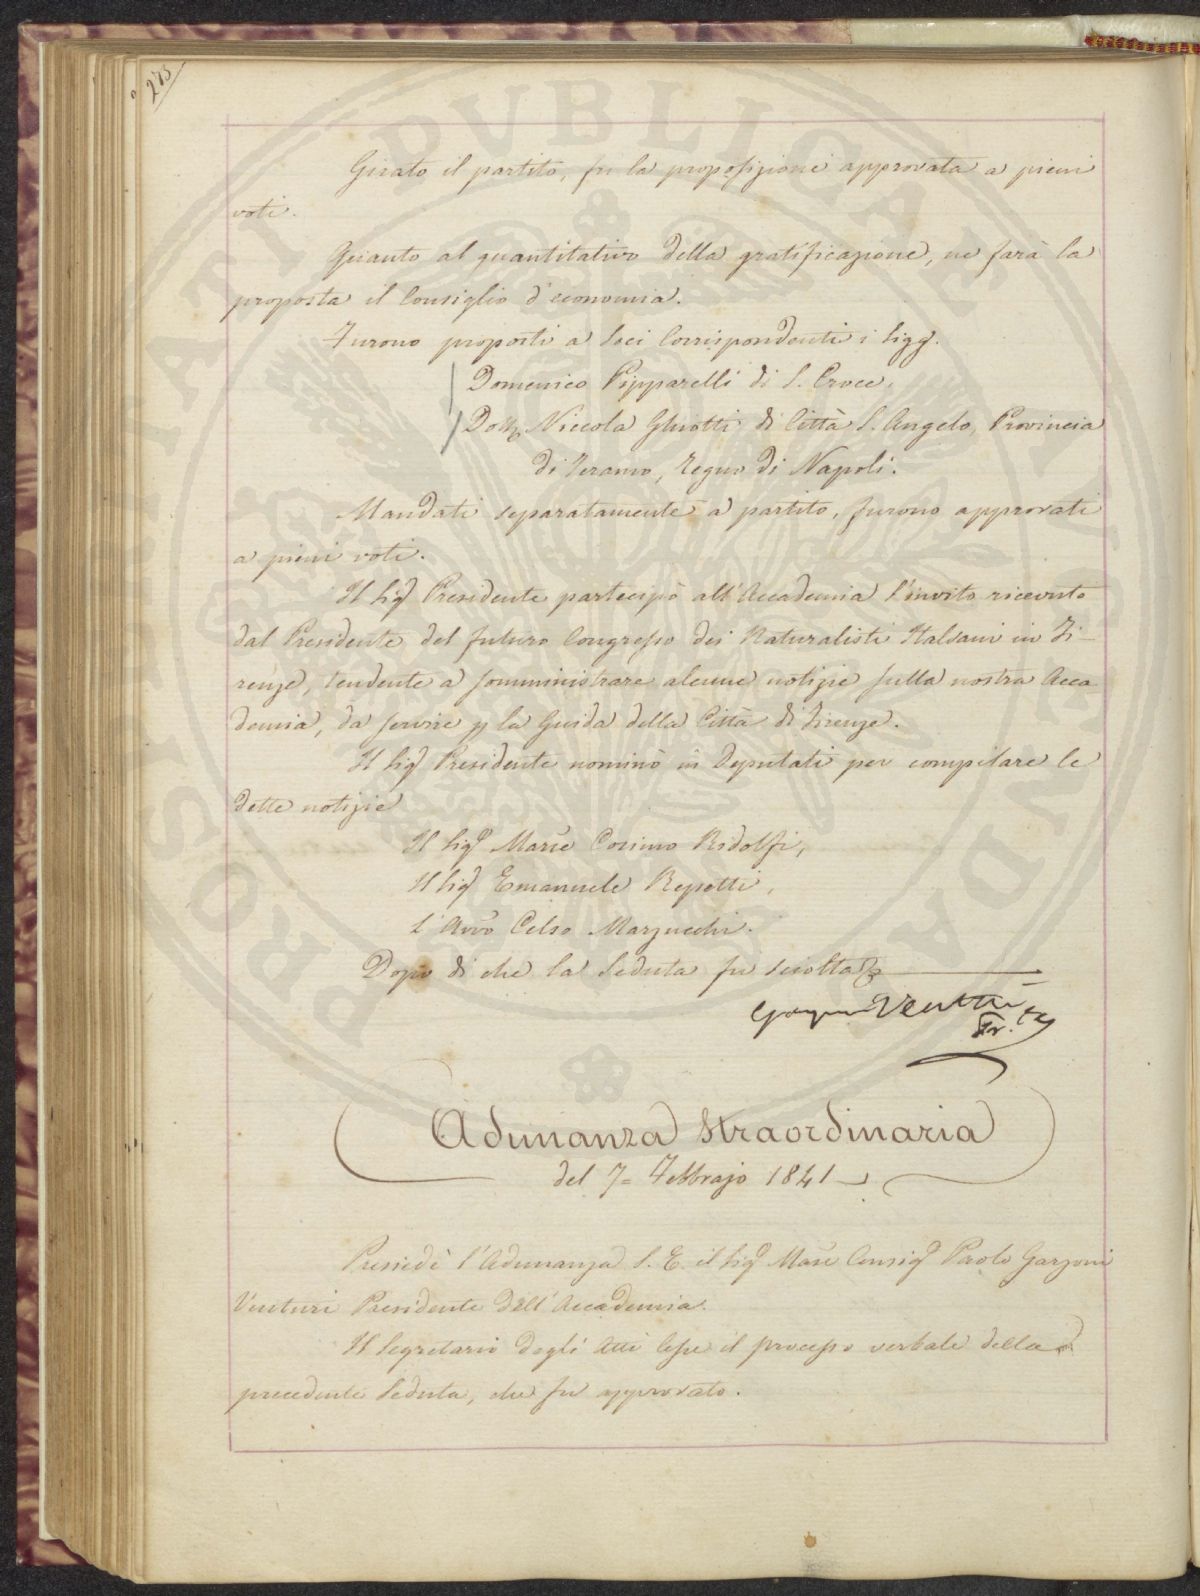 273
Girato il partito, fu la proposizione approvata a pieni
voti.
Quanto al quantitativo della gratificazione, ne farà la
proposta il Consiglio d'economia.
Furono proposti a Soci Corrispondenti i Sigg.
Domenico Pipparelli di S. Croce,
Dott. Niccola Ghiotti di Città S. Angelo, Provincia
di Teramo, Regno di Napoli.
Mandati separatamente a partito, furono approvati
a pieni voti.
Il Sig. Presidente partecipò all'Accademia l'invito ricevuto
dal Presidente del futuro Congresso dei Naturalisti Italiani in Fi-
renze, tendente a somministrare alcune notizie sulla nostra Acca
demia, da servire p la Guida della Città di Firenze.
Il Sig. Presidente nominò in Deputati per compilare le
dette notizie
Il Sig. Marse Cosimo Ridolfi,
Il Sig. Emanuele Repetti,
L'Avvo Celso Marzucchi.
Dopo di che la Seduta fu sciolta
Venturi
Adunanza Straordinaria
del 7= Febbrajo 1841
Presiedè l'Adunanza S. E. il Sig. Marse Consig. Paolo Garzoni
Venturi Presidente dell'Accademia.
Il Segretario degli Atti lesse il processo verbale della
precedente Seduta, che fu approvato.
PROSPERITATI PUBLICAE AUGENDAE